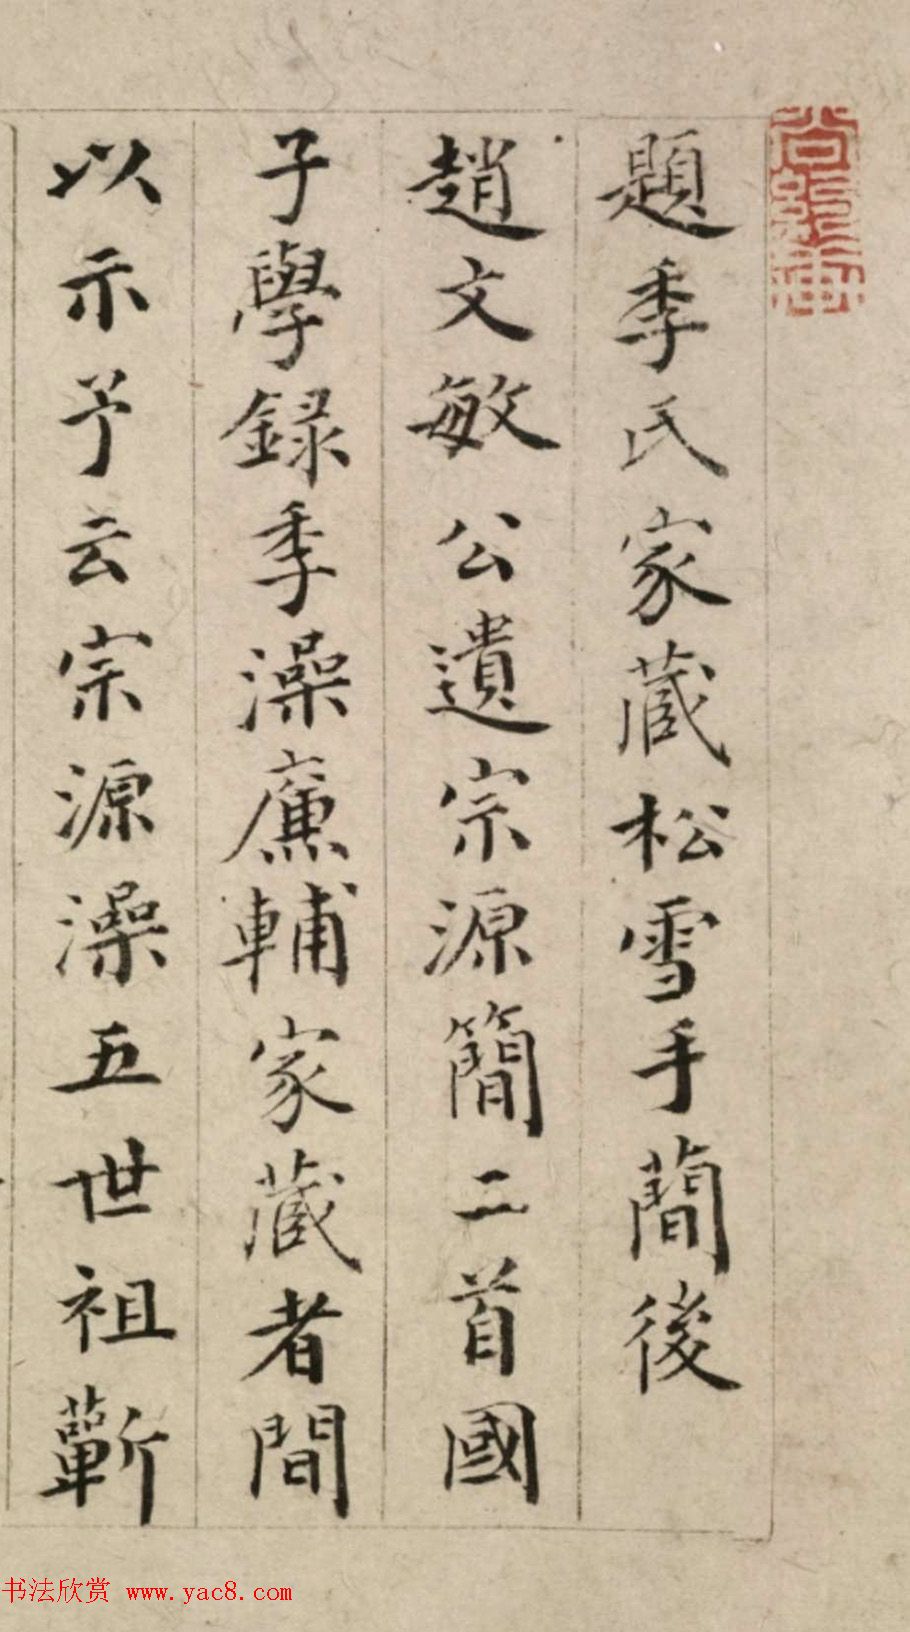 題季氏家藏松雪手蕳後
趙文敏公遺宗源簡二首國
子學録季澡廉輔家藏者間
以示予云宗源澡五世祖蘄
书法欣赏 www.yac8.com